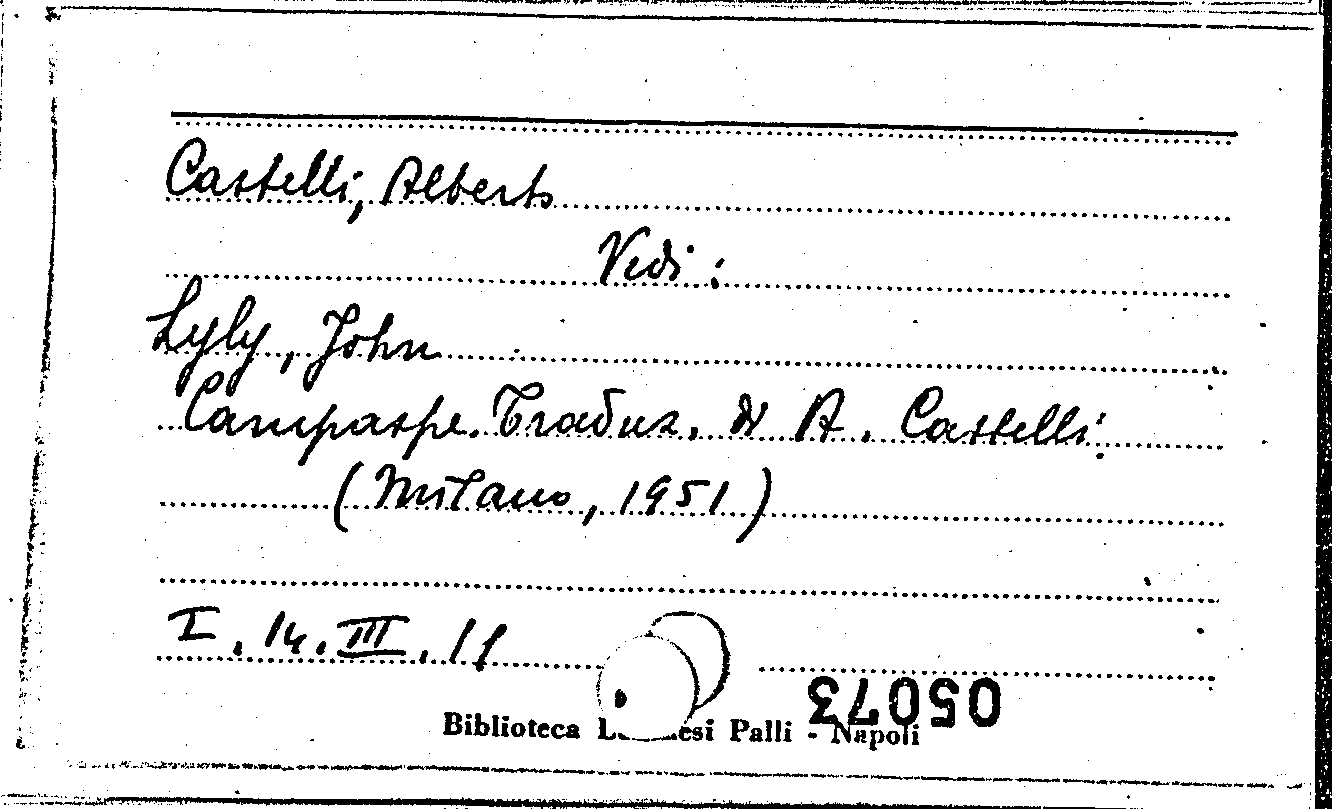 Castelli, Alberto
Vedi:
Lyly, John
Campaspe. Traduz. di A. Castelli
(Milano, 1951)
I.14.III.11
05073
Biblioteca Palli - Napoli